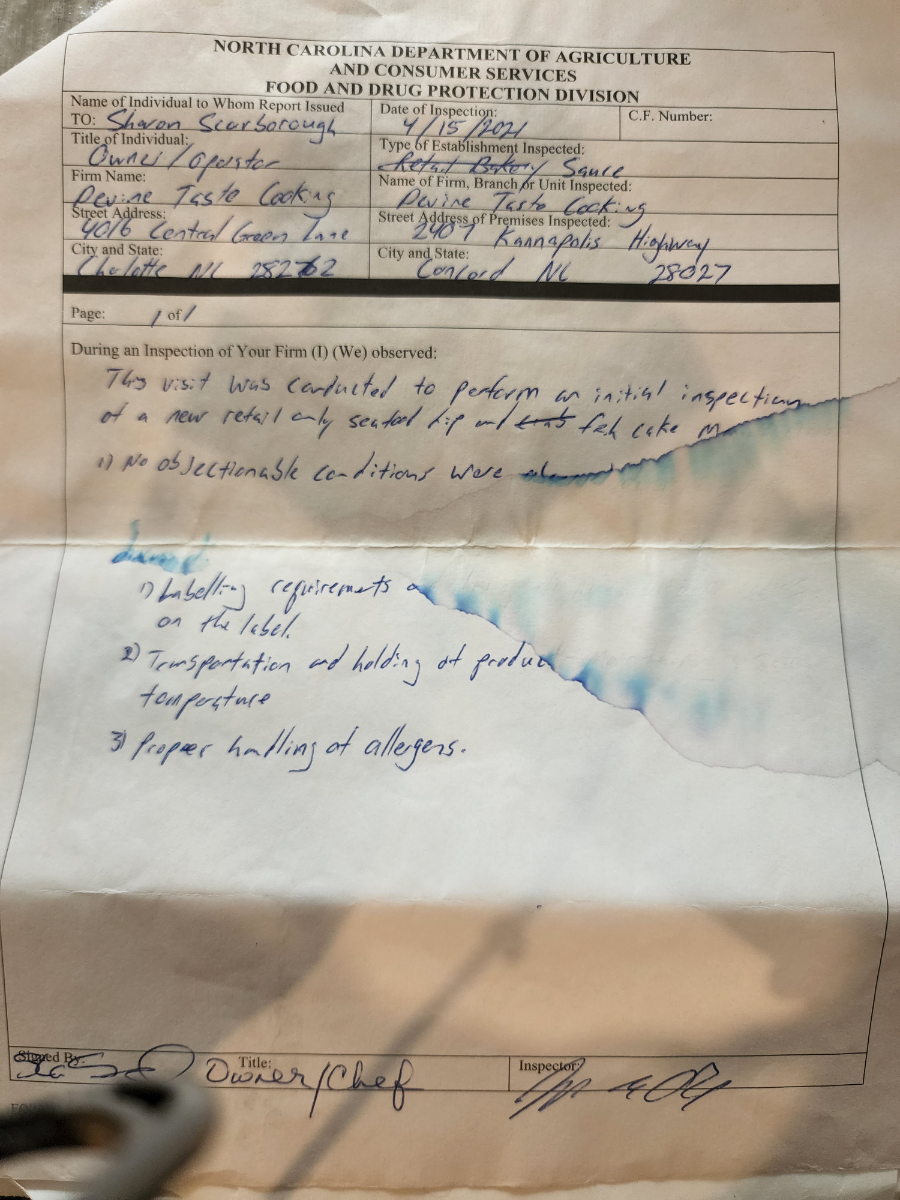 NORTH CAROLINA DEPARTMENT OF AGRICULTURE
AND CONSUMER SERVICES
FOOD AND DRUG PROTECTION DIVISION
Name of Individual to Whom Report Issued
TO: Sharon Scarborough
Date of Inspection:
4/15/2021
C.F. Number:
Title of Individual:
Owner/Operator
Type of Establishment Inspected:
Retail Bakery Sauce
Firm Name:
Devine Taste Cooking
Name of Firm, Branch or Unit Inspected:
Devine Taste Cooking
Street Address:
4016 Central Green Lane
Street Address of Premises Inspected:
2407 Kannapolis Highway
City and State:
Charlotte NC 28262
City and State:
Concord NC 28027
Page: 1 of 1
During an Inspection of Your Firm (I) (We) observed:
This visit was conducted to perform an initial inspection
of a new retail only seafood dip and fish cake
1) No objectionable conditions were
1) Labelling requirements
on the label.
2) Transportation and holding of
temperature
3) Proper handling of allergens.
Signed By:
Title:
Owner/Chef
Inspector: